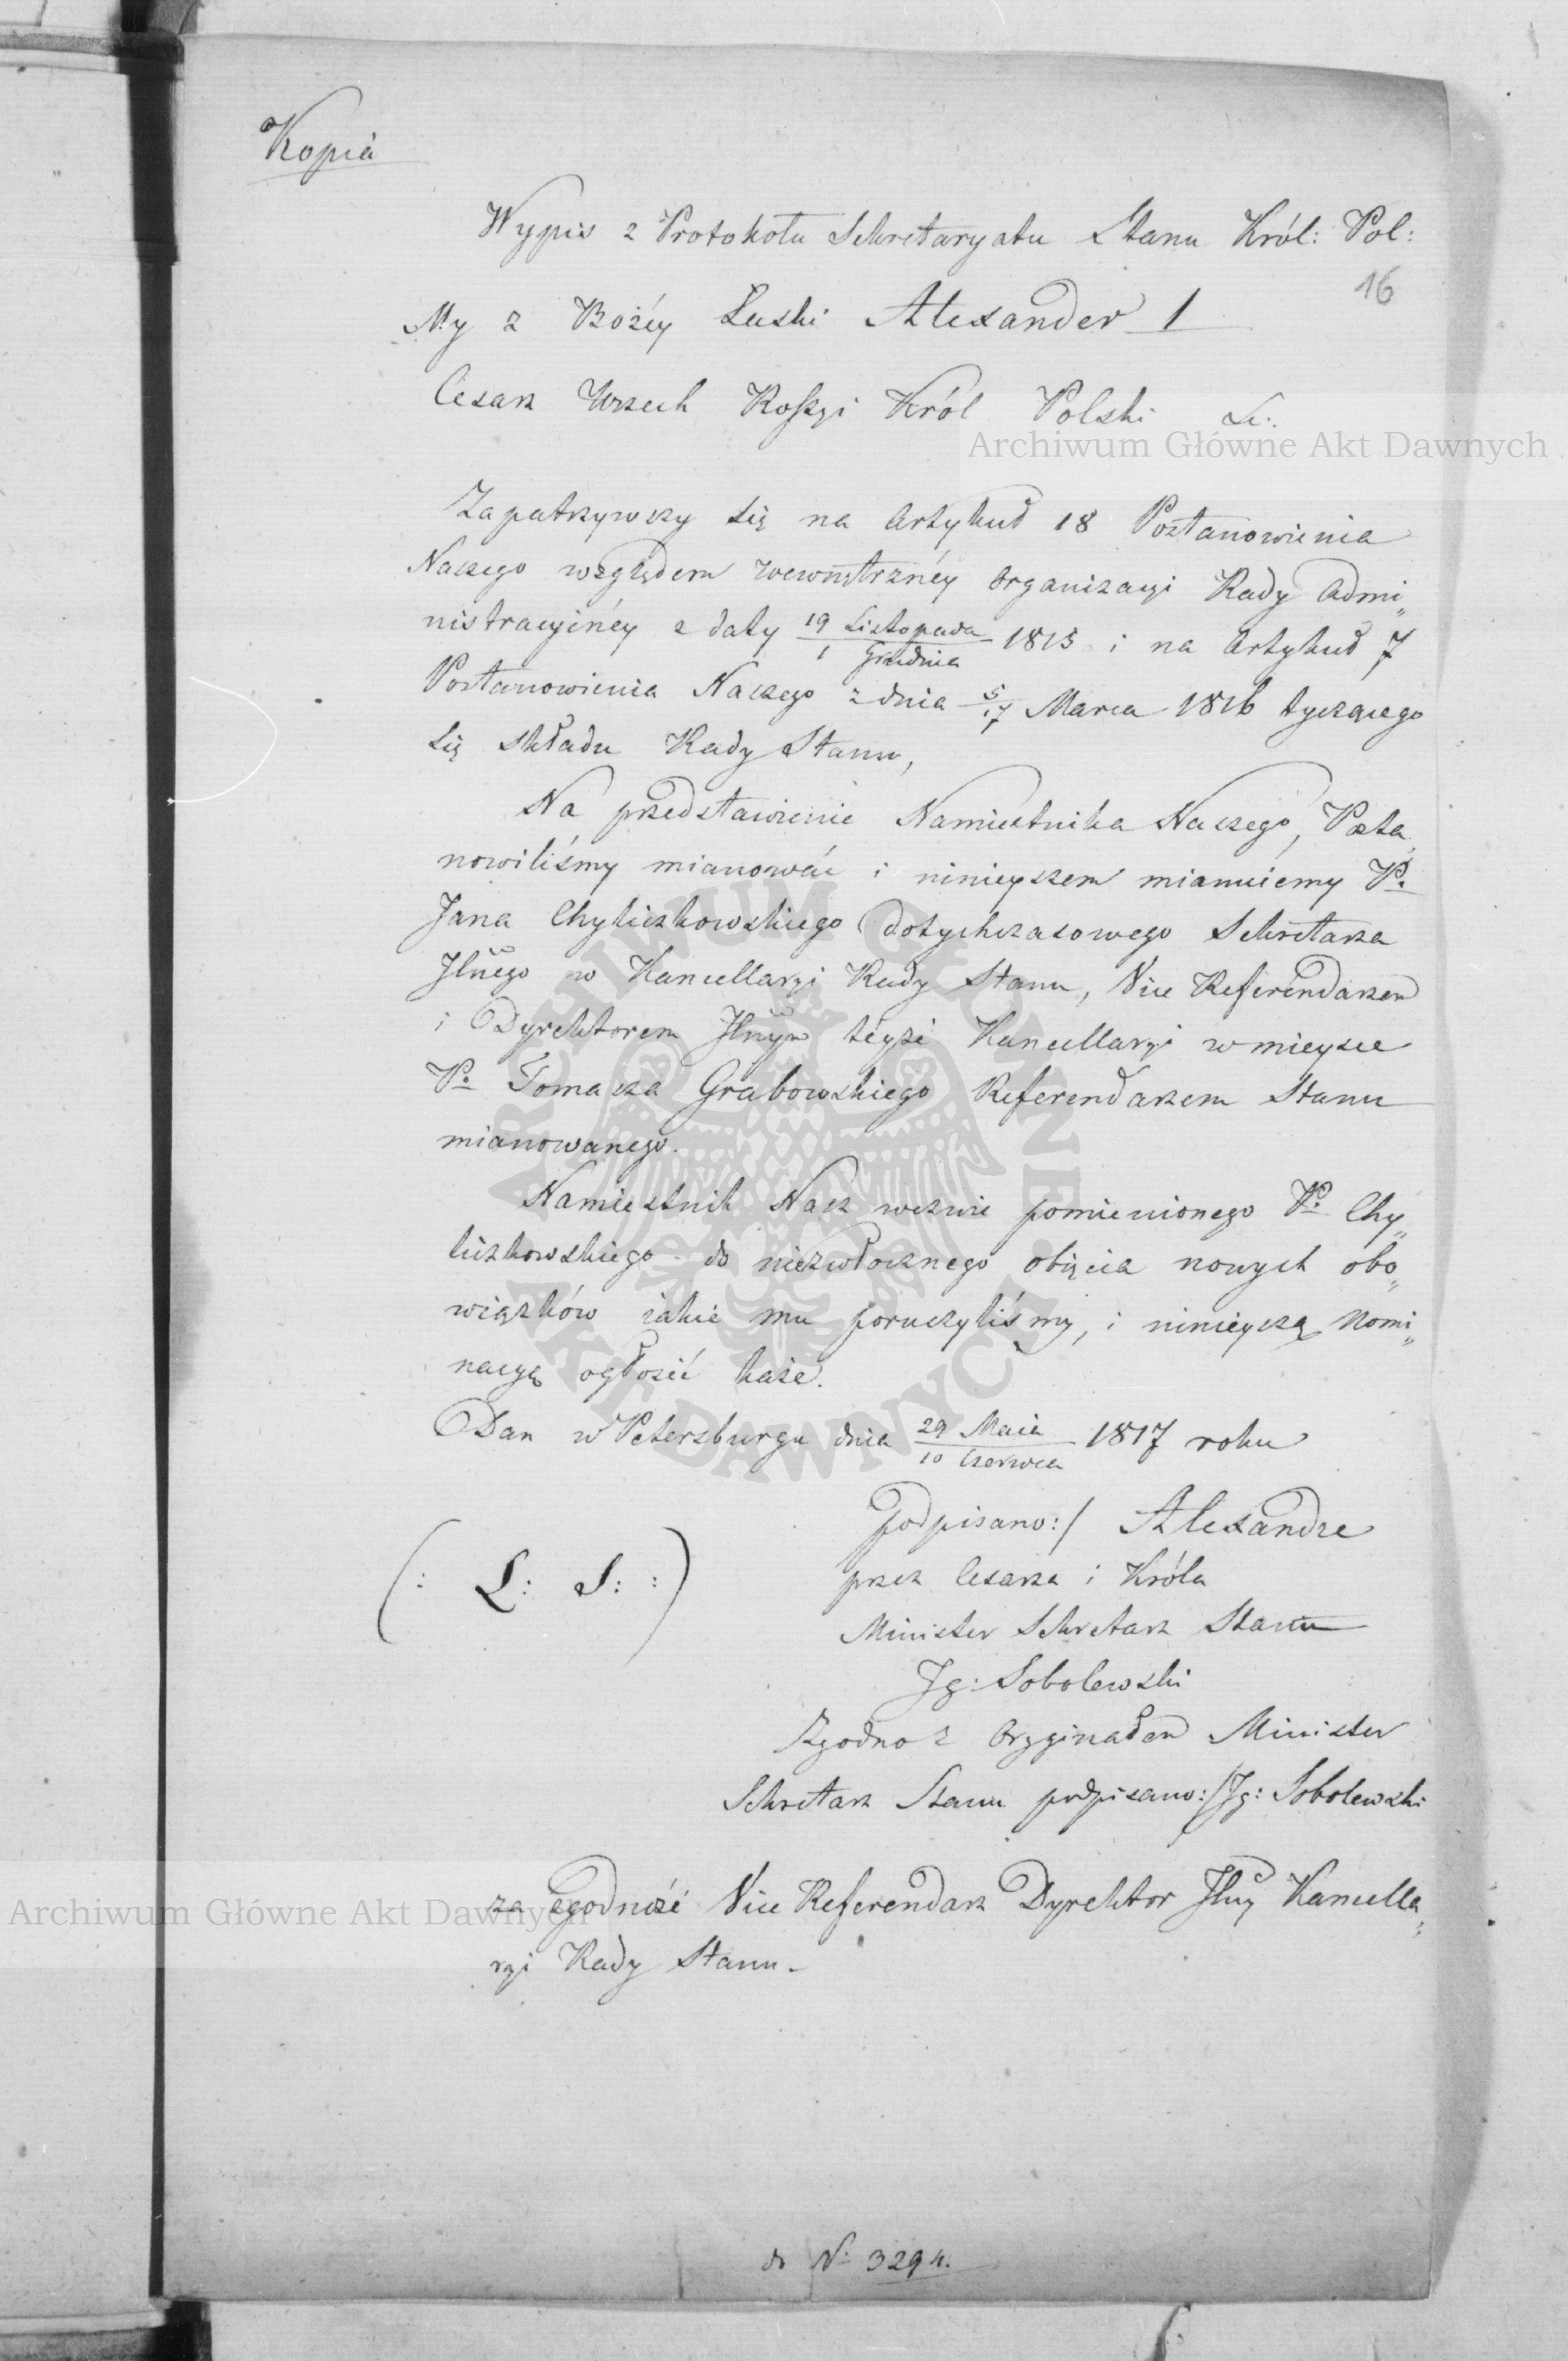 Kopia
Wypis z Protokołu Sekretaryatu Stanu Król: Pol:
16
My z Bożéy Łaski Alexander I
Cesarz Wszech Rossyi Król Polski &c:.
Archiwum Główne Akt Dawnych
Zapatrzywszy się na Artykuł 18 Postanowienia
Naszego względem wewnętrznéy Organizacyi Rady Admi„
nistracyinéy z daty 19 Listopada / 1 Grudnia 1815 i na Artykuł 7
Postanowienia Naszego z dnia 5/17 Marca 1816 tyczącego
się składu Rady Stanu,
Na przedstawienie Namiestnika Naszego, Posta„
nowiliśmy mianować i ninieyszem mianuiemy P.
Jana Chyliczkowskiego dotychczasowego Sekretarza
Jlnego w Kancellaryi Rady Stanu, Vice Referendarzem
i Dyrektorem Jlnym teyże Kancellaryi w mieysce
P. Tomasza Grabowskiego Referendarzem Stanu
mianowanego.
Namiestnik Nasz wezwie pomienionego P. Chy„
liczkowskiego do niezwłocznego obięcia nowych obo„
wiązków iakie mu poruczyliśmy, i ninieyszą Nomi„
nacyą ogłosić każe.
Dan w Petersburgu dnia 29 Maia / 10 Czerwca 1817 roku
podpisano:/ Alexandre
(: L: S: :)
przez Cesarza i Króla
Minister Sekretarz Stanu
Jg: Sobolewski
Zgodno z Oryginałem Minister
Sekretarz Stanu podpisano:/ Jg: Sobolewski
za zgodność Vice Referendarz Dyrektor Jlny Kancella„
ryi Rady Stanu
Archiwum Główne Akt Dawnych
do N. 3294.
ARCHIWUM GŁÓWNE AKT DAWNYCH